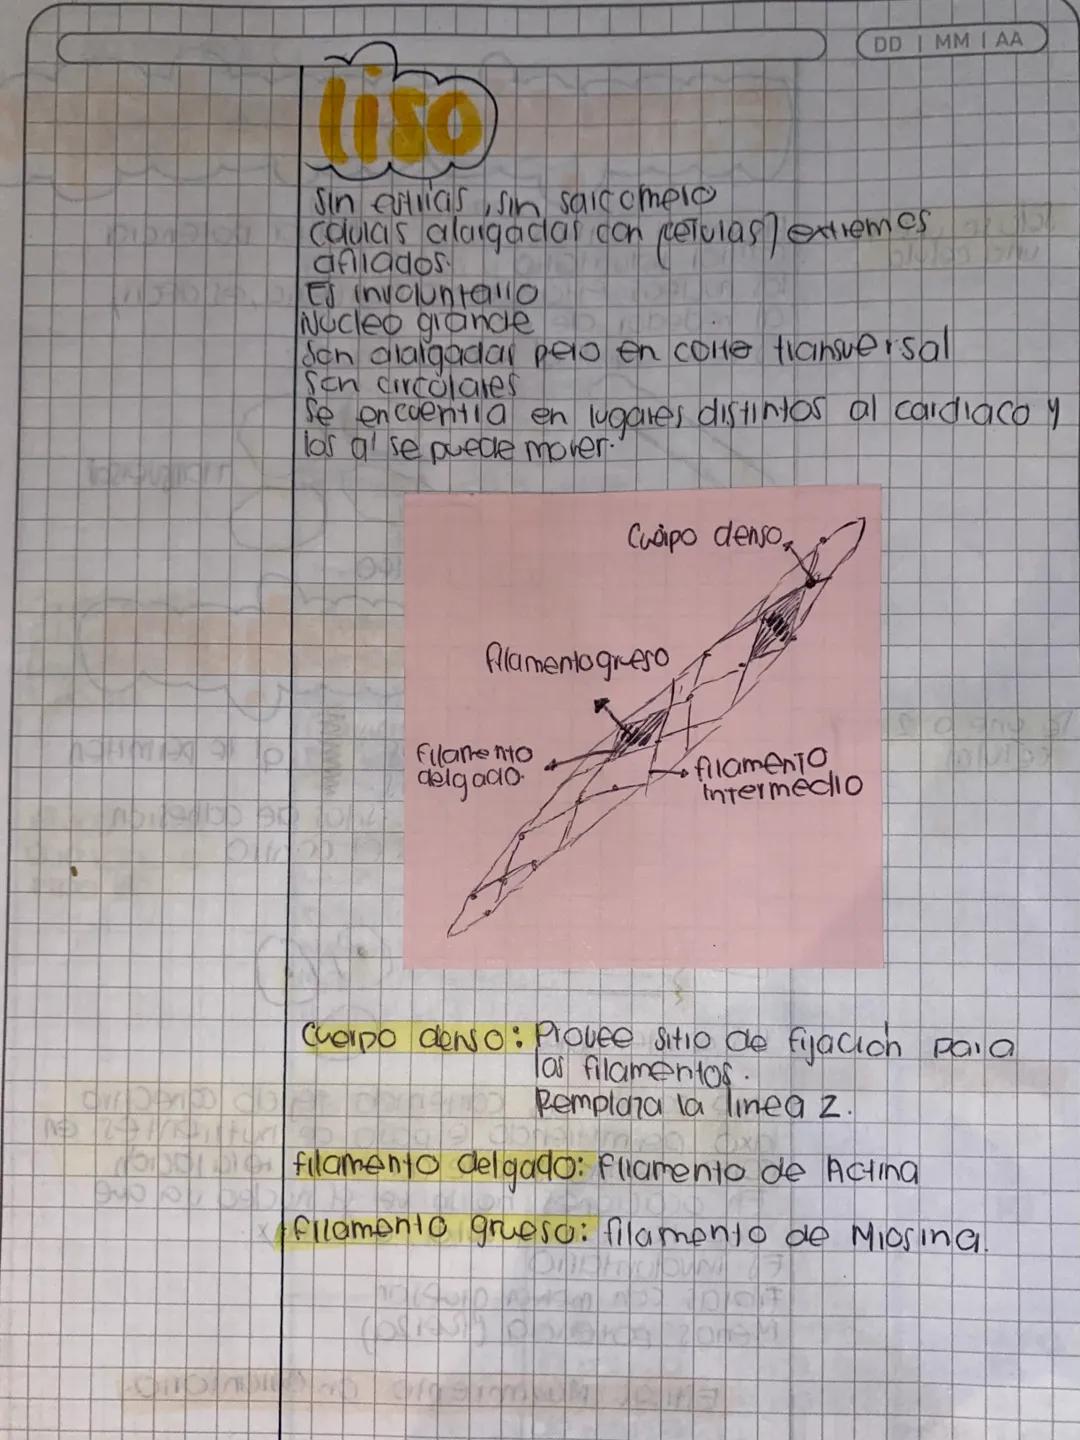 DD | MM | AA
liso
Sin estrías, sin sarcomero
células alargadas con (células) extremos
afilados.
Es involuntario
Núcleo grande
Son alargadas pero en corte transversal
son circulares
Se encuentra en lugares distintos al cardiaco y
los q' se puede mover.
Cuerpo denso
filamento grueso
filamento
delgado.
filamento
intermedio
Cuerpo denso: Provee sitio de fijación para
los filamentos.
Remplaza la línea Z.
filamento delgado: filamento de Actina
filamento grueso: filamento de Miosina.